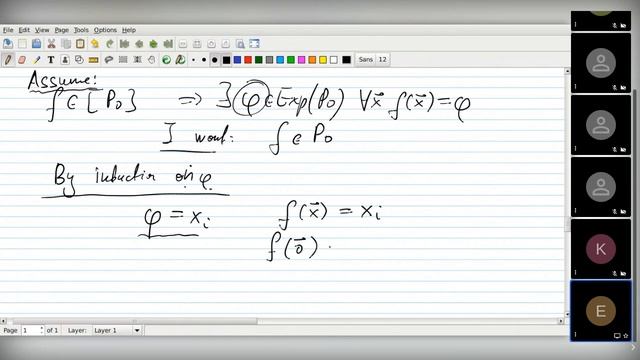 File Edit View Page Tools Options Help
Sans 12
Assume:
f ∈ [P₀] ⇒ ∃ φ ∈ Exp(P₀) ∀x⃗ f(x⃗) = φ
I want: f ∈ P₀
By induction on φ.
φ = xᵢ f(x⃗) = xᵢ
f(0⃗)
Page 1 of 1 Layer: Layer 1
K
E